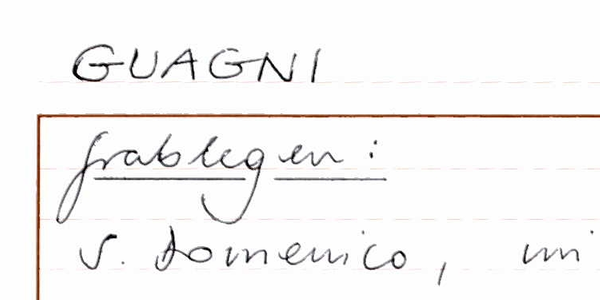 GUAGNI
grablegen:
S. Domenico, mi